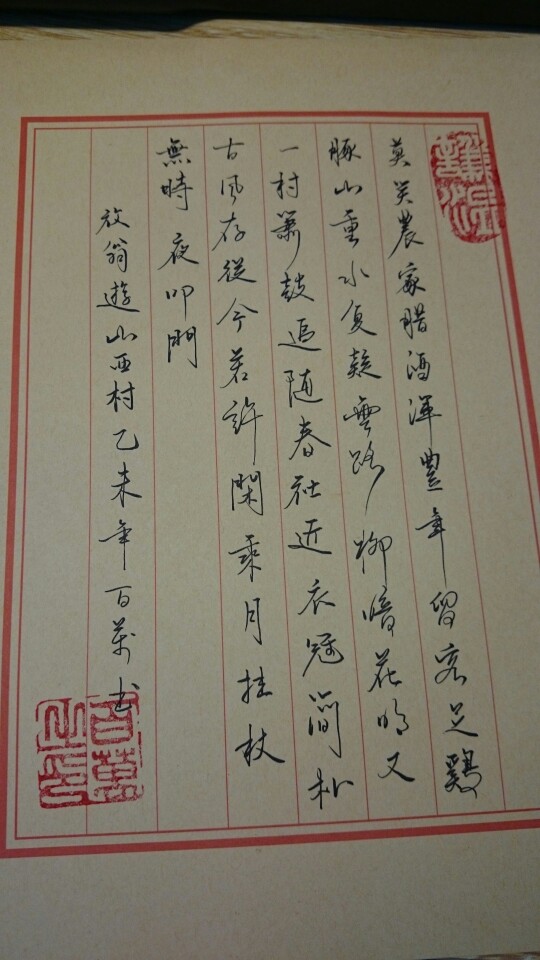 莫笑農家腊酒渾豐年留客足鷄
豚山重水复疑無路柳暗花明又
一村箫鼓追随春社近衣冠簡朴
古風存從今若許閑乘月拄杖
無時夜叩門
放翁遊山西村乙未年百萬书
百萬之印